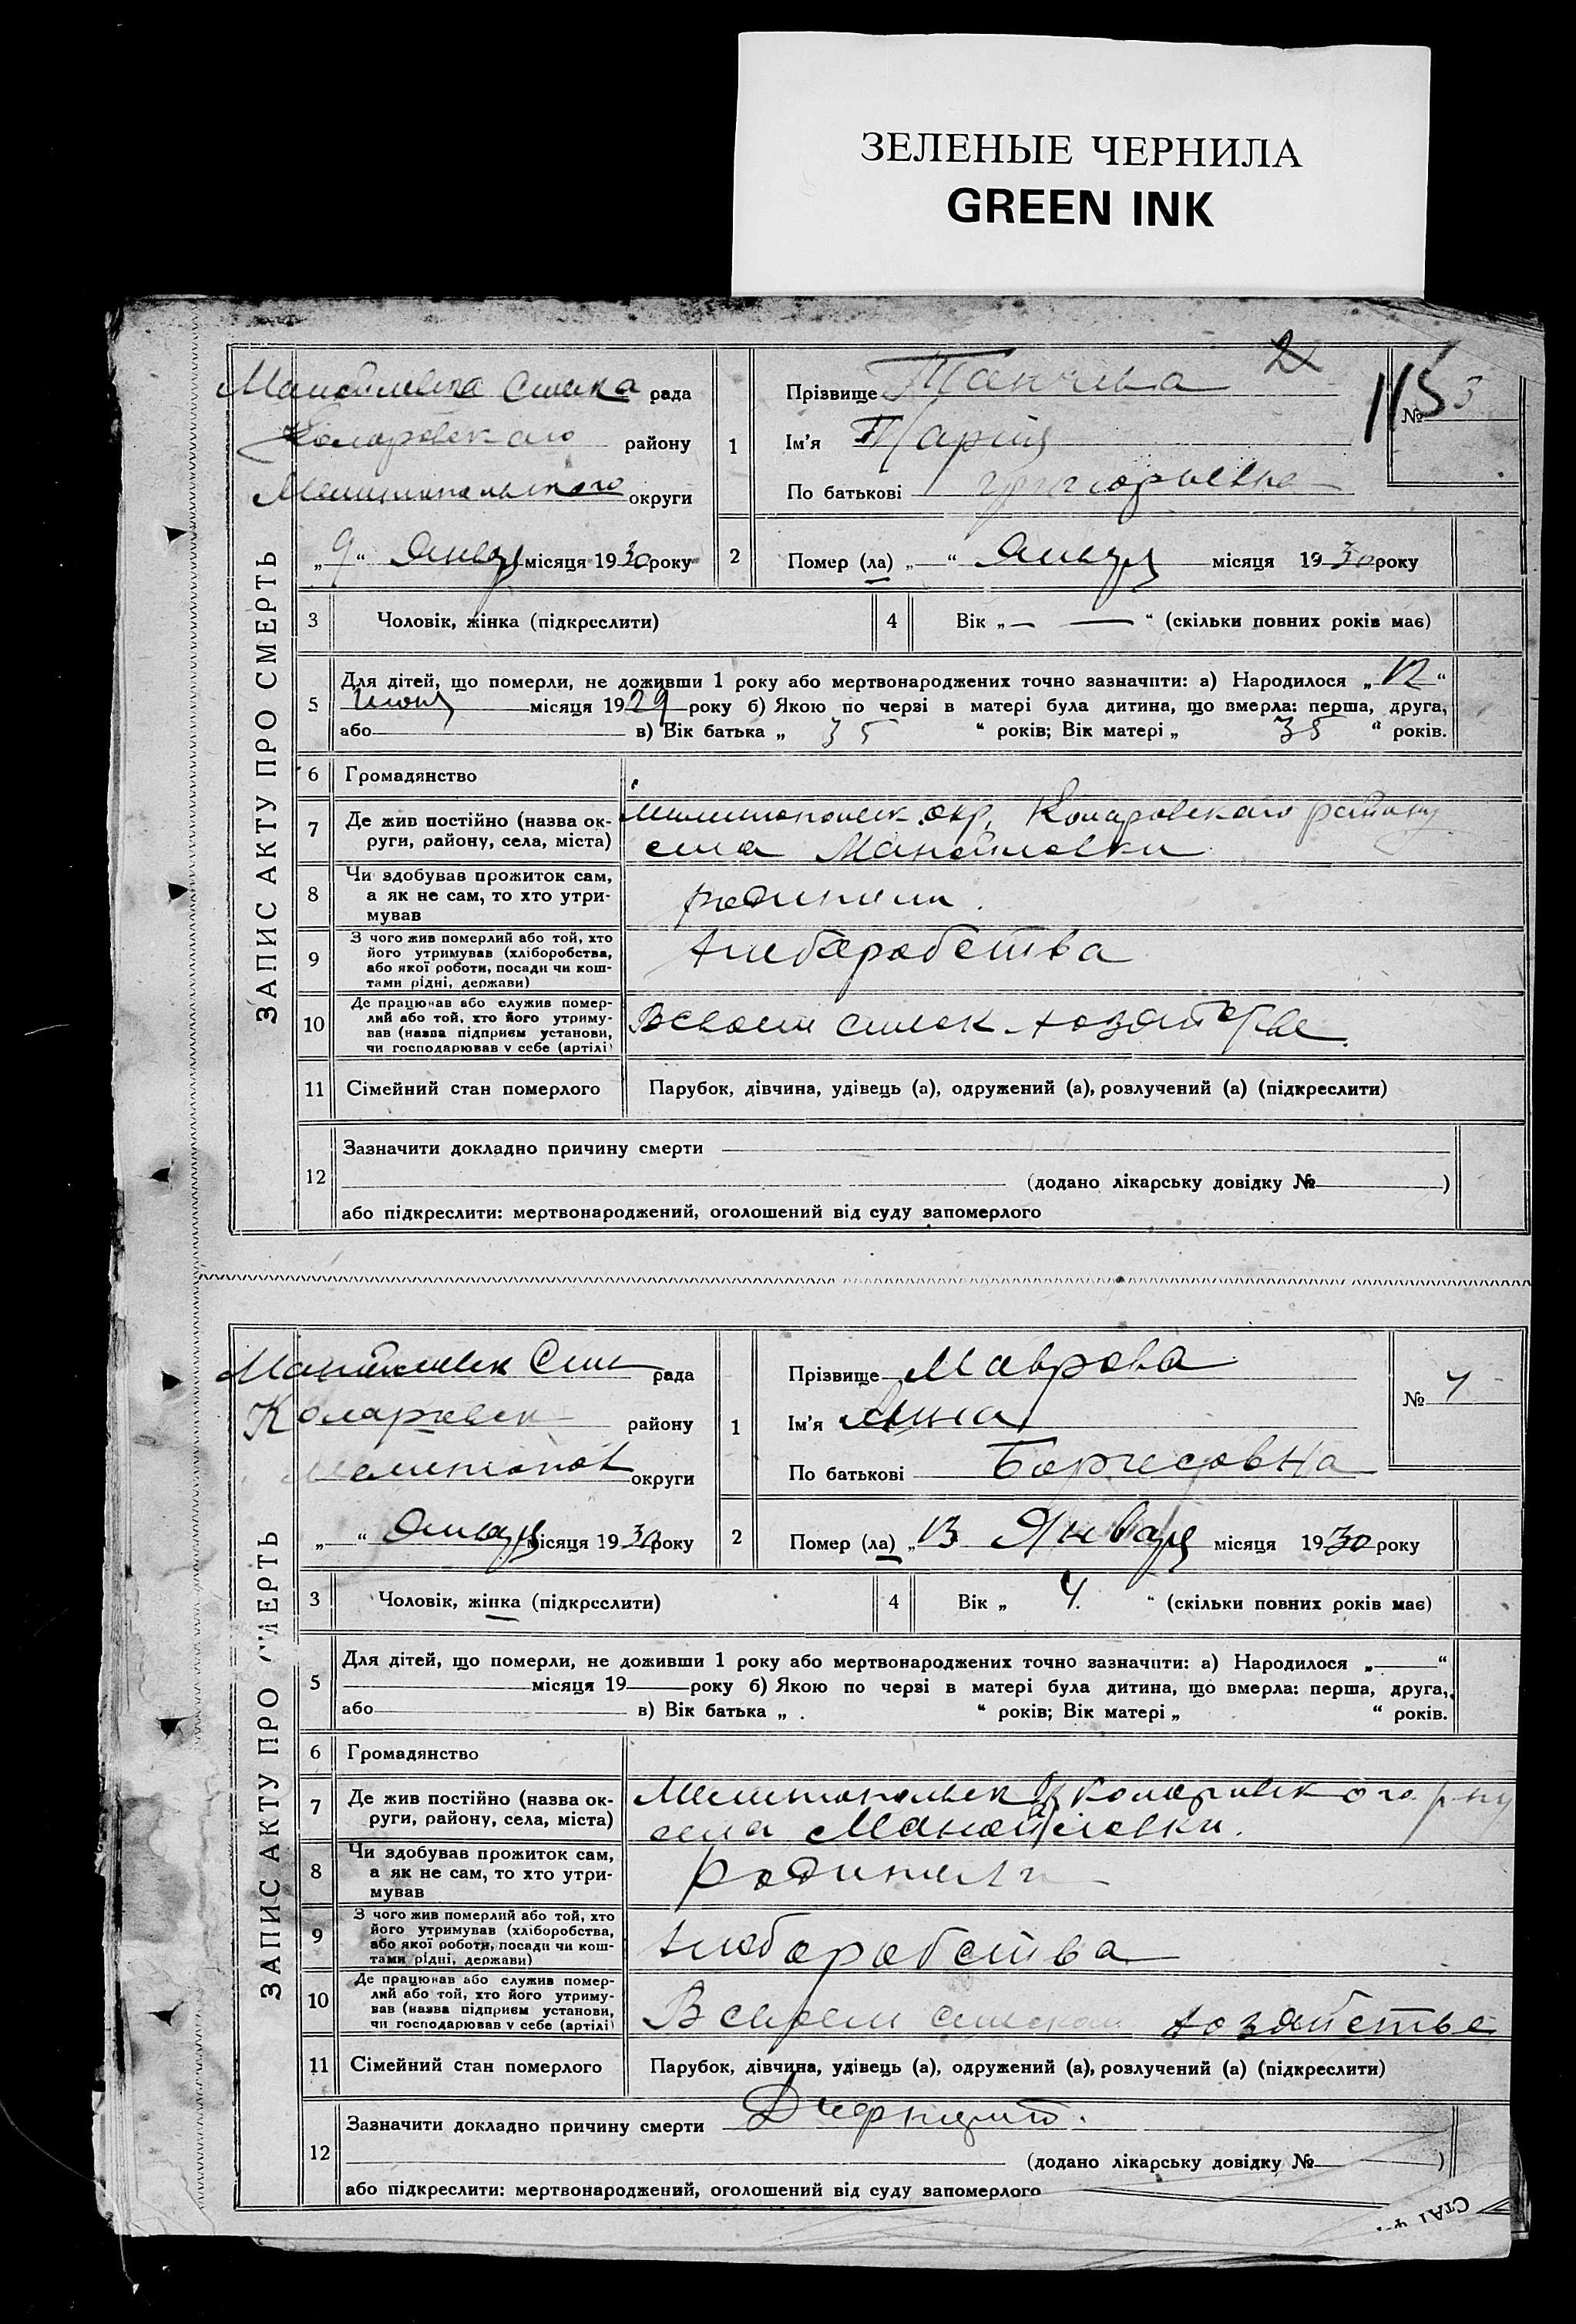 ЗЕЛЕНЫЕ ЧЕРНИЛА
GREEN INK
ЗАПИС АКТУ ПРО СМЕРТЬ
рада
району
округи
„9“ Январ місяця 1930 року
1
Прізвище Танчева
Ім'я Мария
По батькові Григорьевна
№ 3
115
2
Помер (ла) „—“ Января місяця 1930 року
3 Чоловік, жінка (підкреслити)
4 Вік „— —“ (скільки повних років має)
5 Для дітей, що померли, не доживши 1 року або мертвонароджених точно зазначити: а) Народилося „12“
місяця 1929 року б) Якою по черзі в матері була дитина, що вмерла: перша, друга,
або в) Вік батька „35“ років; Вік матері „35“ років.
6 Громадянство
7 Де жив постійно (назва округи, району, села, міста)
Мелитопольск. окр. Коларовского району
села Манойловки
8 Чи здобував прожиток сам, а як не сам, то хто утримував
родители.
9 З чого жив померлий або той, хто його утримував (хліборобства, або якої роботи, посади чи коштами рідні, держави)
хлеборобства
10 Де працював або служив померлий або той, хто його утримував (назва підприєм установи, чи господарював у себе (артілі)
В своем сельск хозяйстве.
11 Сімейний стан померлого
Парубок, дівчина, удівець (а), одружений (а), розлучений (а) (підкреслити)
12 Зазначити докладно причину смерти
(додано лікарську довідку № )
або підкреслити: мертвонароджений, оголошений від суду запомерлого
ЗАПИС АКТУ ПРО СМЕРТЬ
Манойловск Сель рада
Коларовск району
Мелитопол округи
„—“ Январ місяця 1930 року
1
Прізвище Маврова
Ім'я Анна
По батькові Борисовна
№ 4
2
Помер (ла) „13 Января місяця 1930 року
3 Чоловік, жінка (підкреслити)
4 Вік „4.“ (скільки повних років має)
5 Для дітей, що померли, не доживши 1 року або мертвонароджених точно зазначити: а) Народилося „—“
місяця 19 року б) Якою по черзі в матері була дитина, що вмерла: перша, друга,
або в) Вік батька „ “ років; Вік матері „ “ років.
6 Громадянство
7 Де жив постійно (назва округи, району, села, міста)
Мелитопольск Коларовского р-ну
села Манойловки.
8 Чи здобував прожиток сам, а як не сам, то хто утримував
родители
9 З чого жив померлий або той, хто його утримував (хліборобства, або якої роботи, посади чи коштами рідні, держави)
хлеборобства
10 Де працював або служив померлий або той, хто його утримував (назва підприєм установи, чи господарював у себе (артілі)
В своем сельском хозяйстве
11 Сімейний стан померлого
Парубок, дівчина, удівець (а), одружений (а), розлучений (а) (підкреслити)
12 Зазначити докладно причину смерти
(додано лікарську довідку № )
або підкреслити: мертвонароджений, оголошений від суду запомерлого